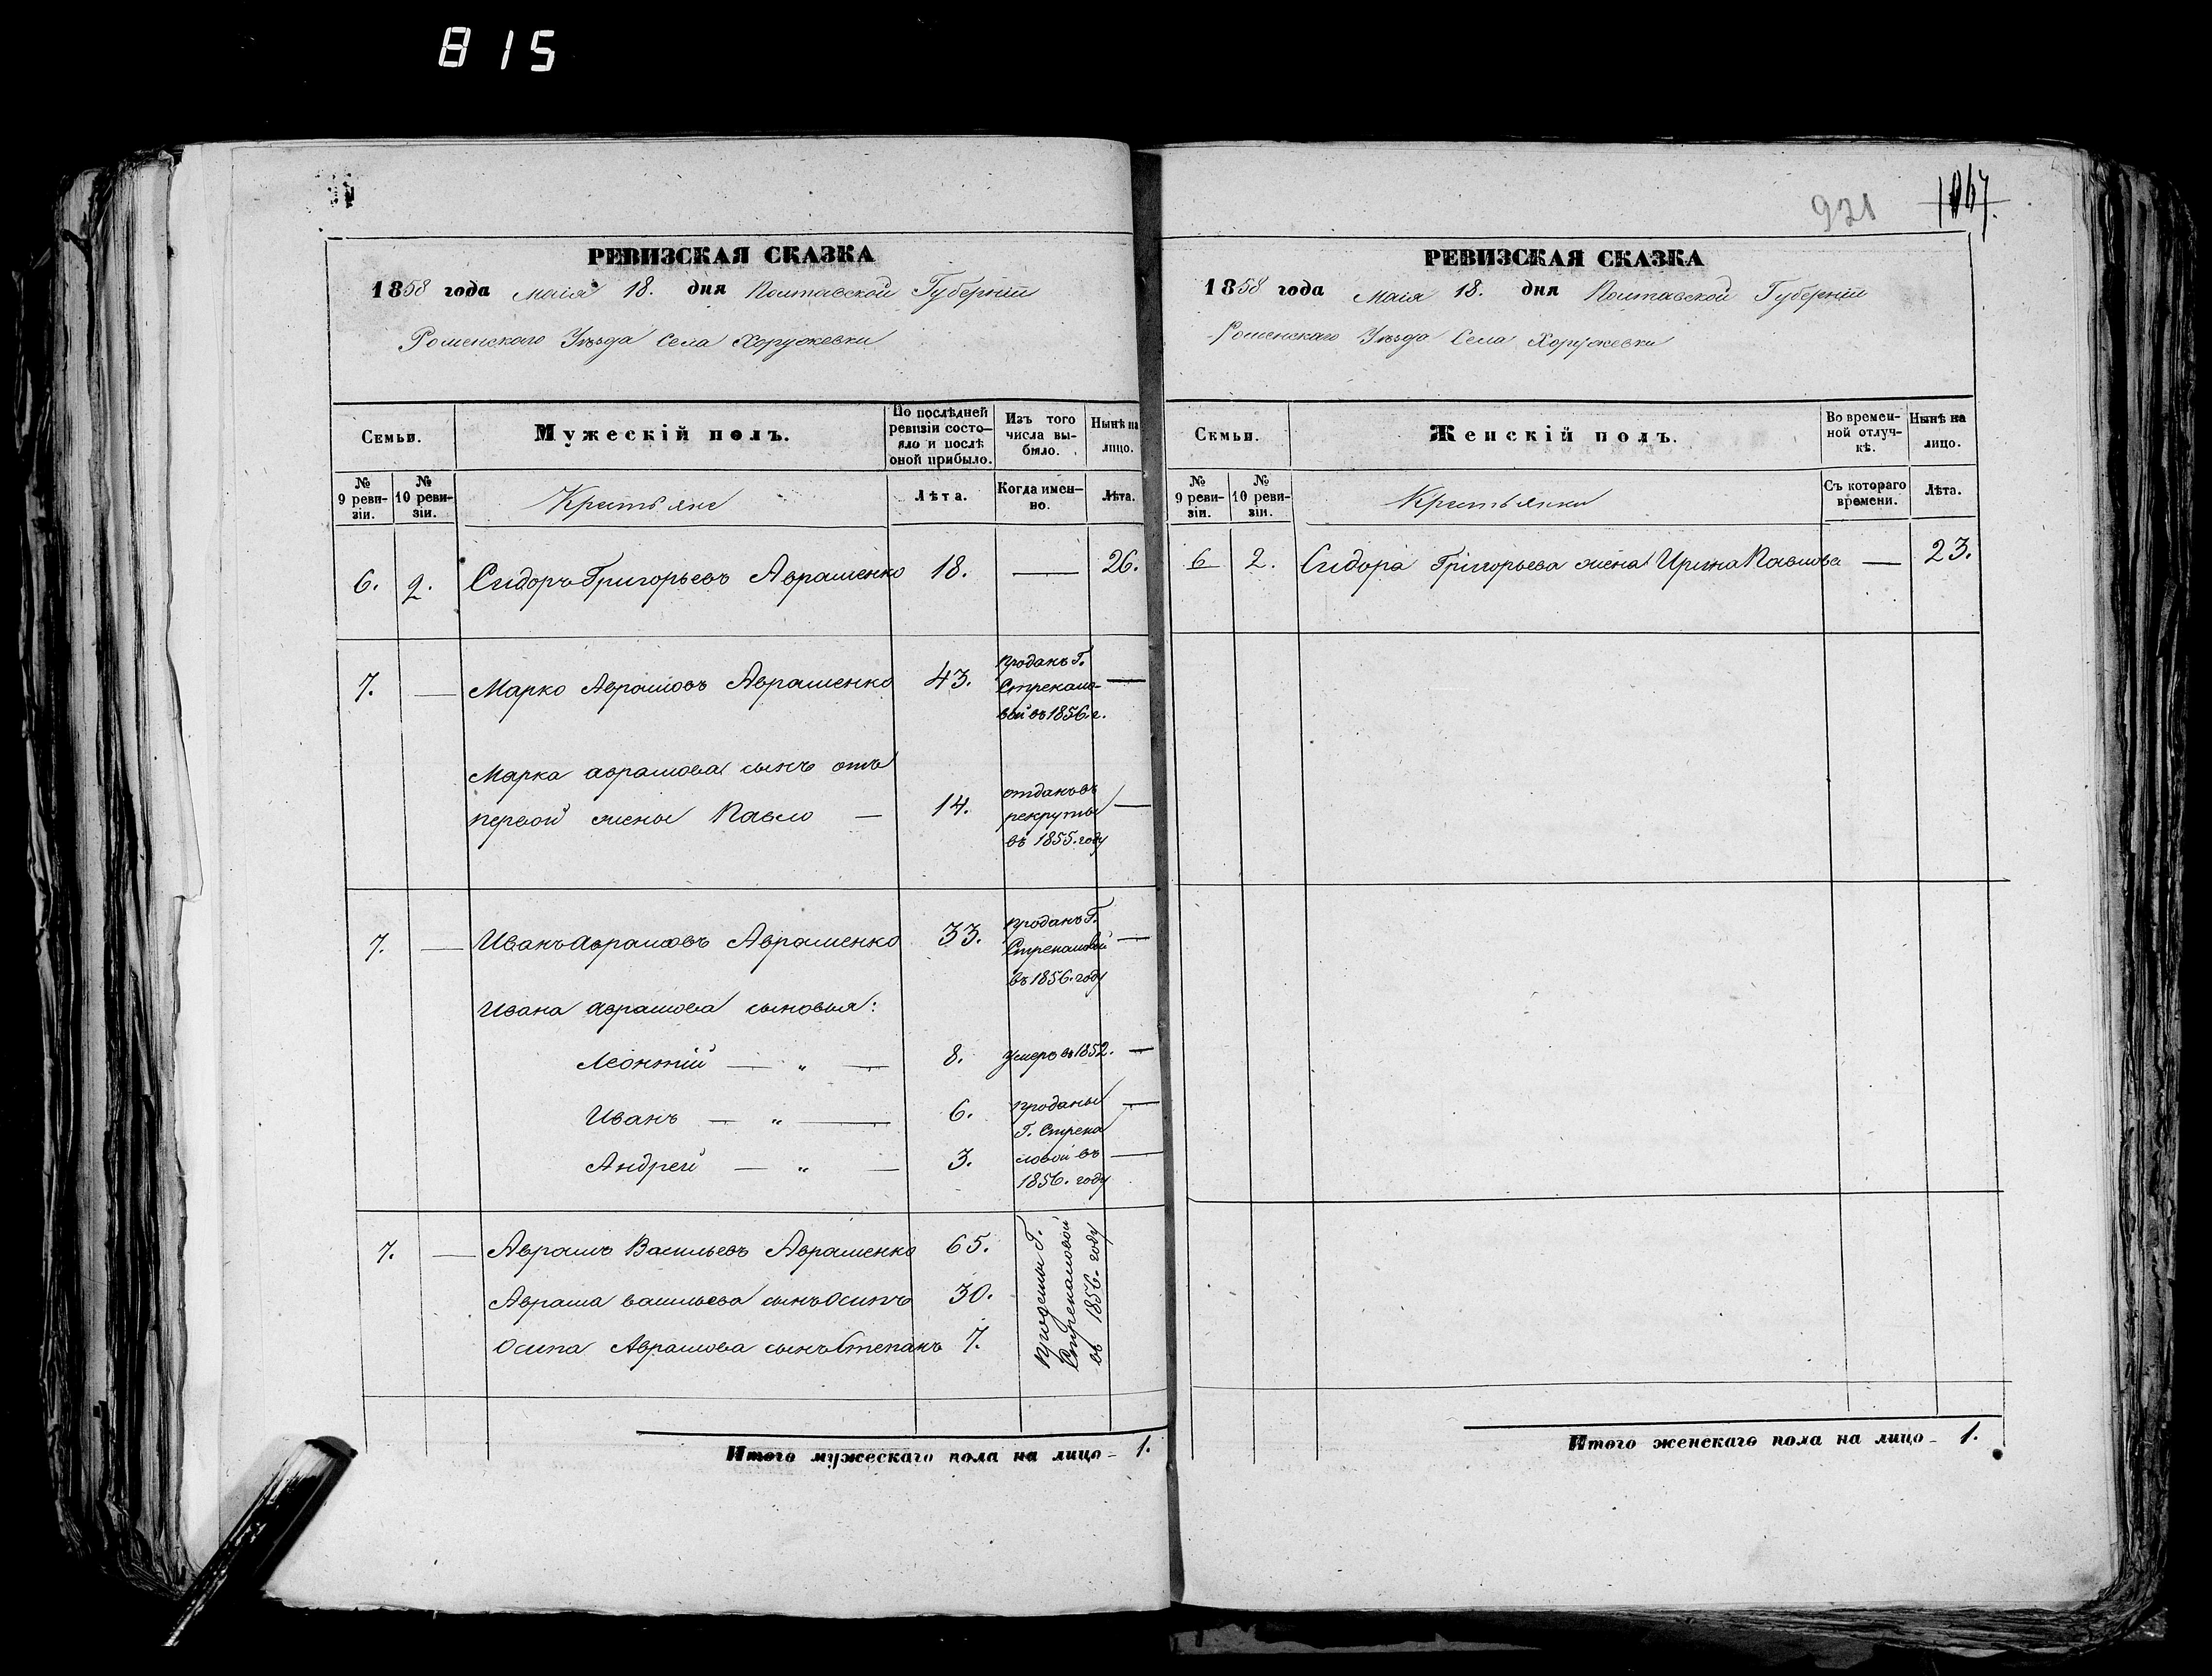 815
РЕВИЗСКАЯ СКАЗКА
1858 года маія 18. дня Полтавской Губерніи
Роменскаго Уѣзда Села Хоружевки
Семьи.
Мужескій полъ.
По послѣдней ревизіи состояло и послѣ оной прибыло.
Изъ того числа выбыло.
Нынѣ на лицо.
№ 9 ревизіи.
№ 10 ревизіи.
Крестьяне
Лѣта.
Когда именно.
Лѣта.
6. 2. Сидоръ Григорьевъ Аврашенко 18. — 26.
7. — Марко Аврамовъ Аврашенко 43. проданъ Г. —
Стрекало-
вой въ 1856. г.
Марка аврамова сынъ отъ
первой жены Павло — 14. отданъ въ —
рекруты
въ 1855. году
7. — Иванъ аврамовъ Аврашенко 33. проданъ Г. —
Стрекаловой
въ 1856. году
Ивана аврамова сыновья:
Леонтій — „ — 8. умеръ въ 1852. —
Иванъ — „ — 6. проданы —
Г. Стрека
Андрей — „ — 3. ловой въ —
1856. году
7. — Аврамъ Васильевъ Аврашенко 65.
Аврама васильева сынъ Осипъ 30.
Осипа Аврамова сынъ Степанъ 7.
Г.
Стрекаловой
въ 1856. году
Итого мужескаго пола на лицо - 1.
921
1067.
РЕВИЗСКАЯ СКАЗКА
1858 года Маія 18. дня Полтавской Губерніи
Роменскаго Уѣзда Села Хоружевки
Семьи.
Женскій полъ.
Во временной отлучкѣ.
Нынѣ на лицо.
№ 9 ревизіи.
№ 10 ревизіи.
Крестьянки
Съ котораго времени.
Лѣта.
6 2. Сидора Григорьева жена Ирина Павлова — 23.
Итого женскаго пола на лицо - 1.